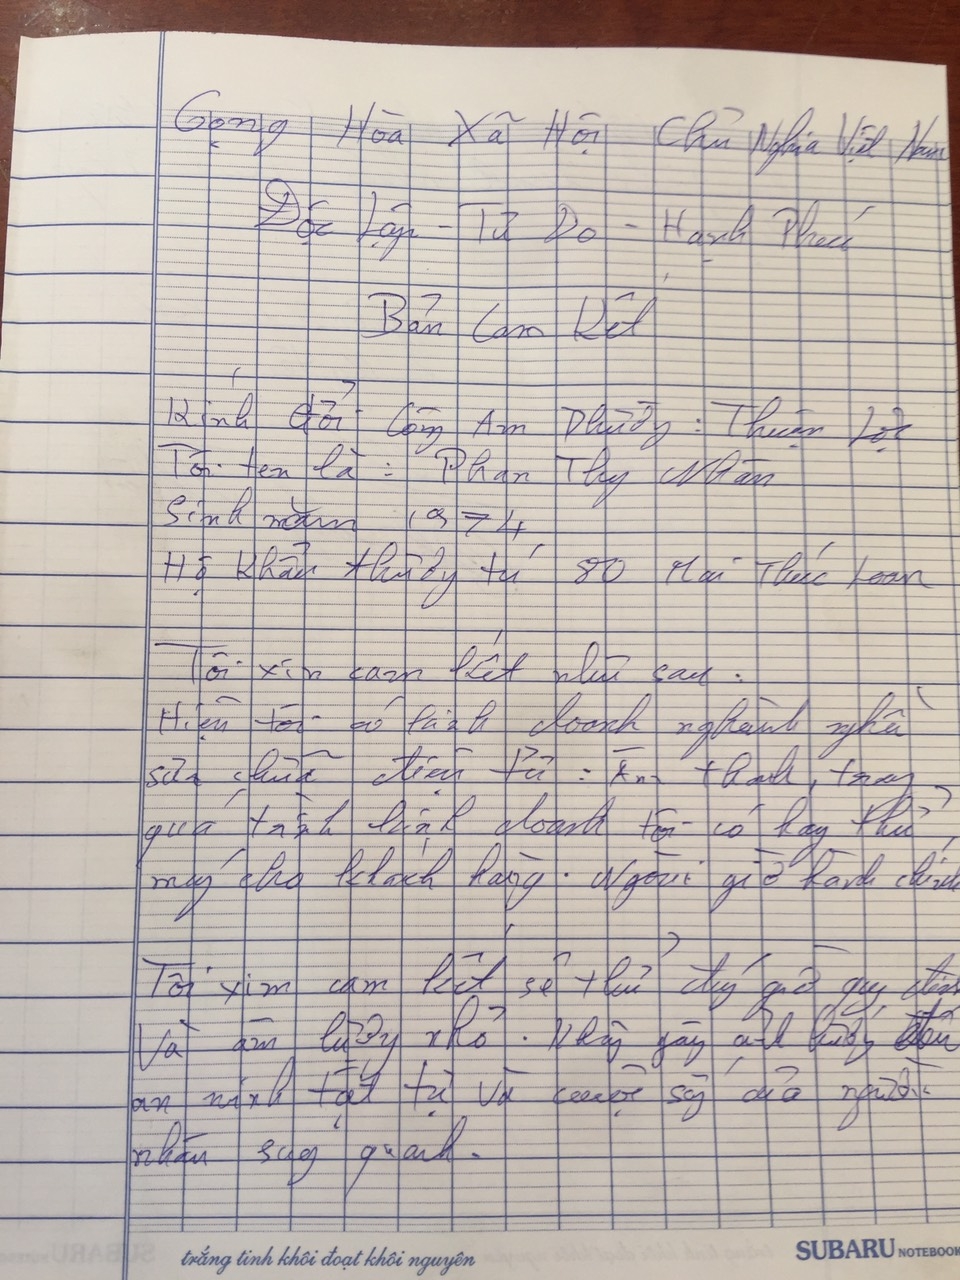 Cọng Hòa Xã Hội Chủ Nghĩa Việt Nam
Độc Lập - Tự Do - Hạnh Phúc
Bản Cam Kết
Kính đối Công An Phường : Thuận Lộc
Tôi tên là : Phan Thy Nhân
Sinh năm 1974
Hộ Khẩu thường tú 80 Mai Thúc Loan
Tôi xin cam kết như sau :
Hiện tôi có kinh doanh nghành nghề
sữa chữa điện tử : Âm thanh, trong
quá trình kinh doanh tôi có hay thử
máy cho khách hàng. Ngoài giờ hành chính
Tôi xim cam kết sẽ thử đúng giờ quy định
Và âm lượng nhỏ. Không gây ảnh hưởng đến
an ninh tật tự và cuộc sống của người
nhân sug quanh.
trắng tinh khôi đoạt khôi nguyên
SUBARU NOTEBOOK